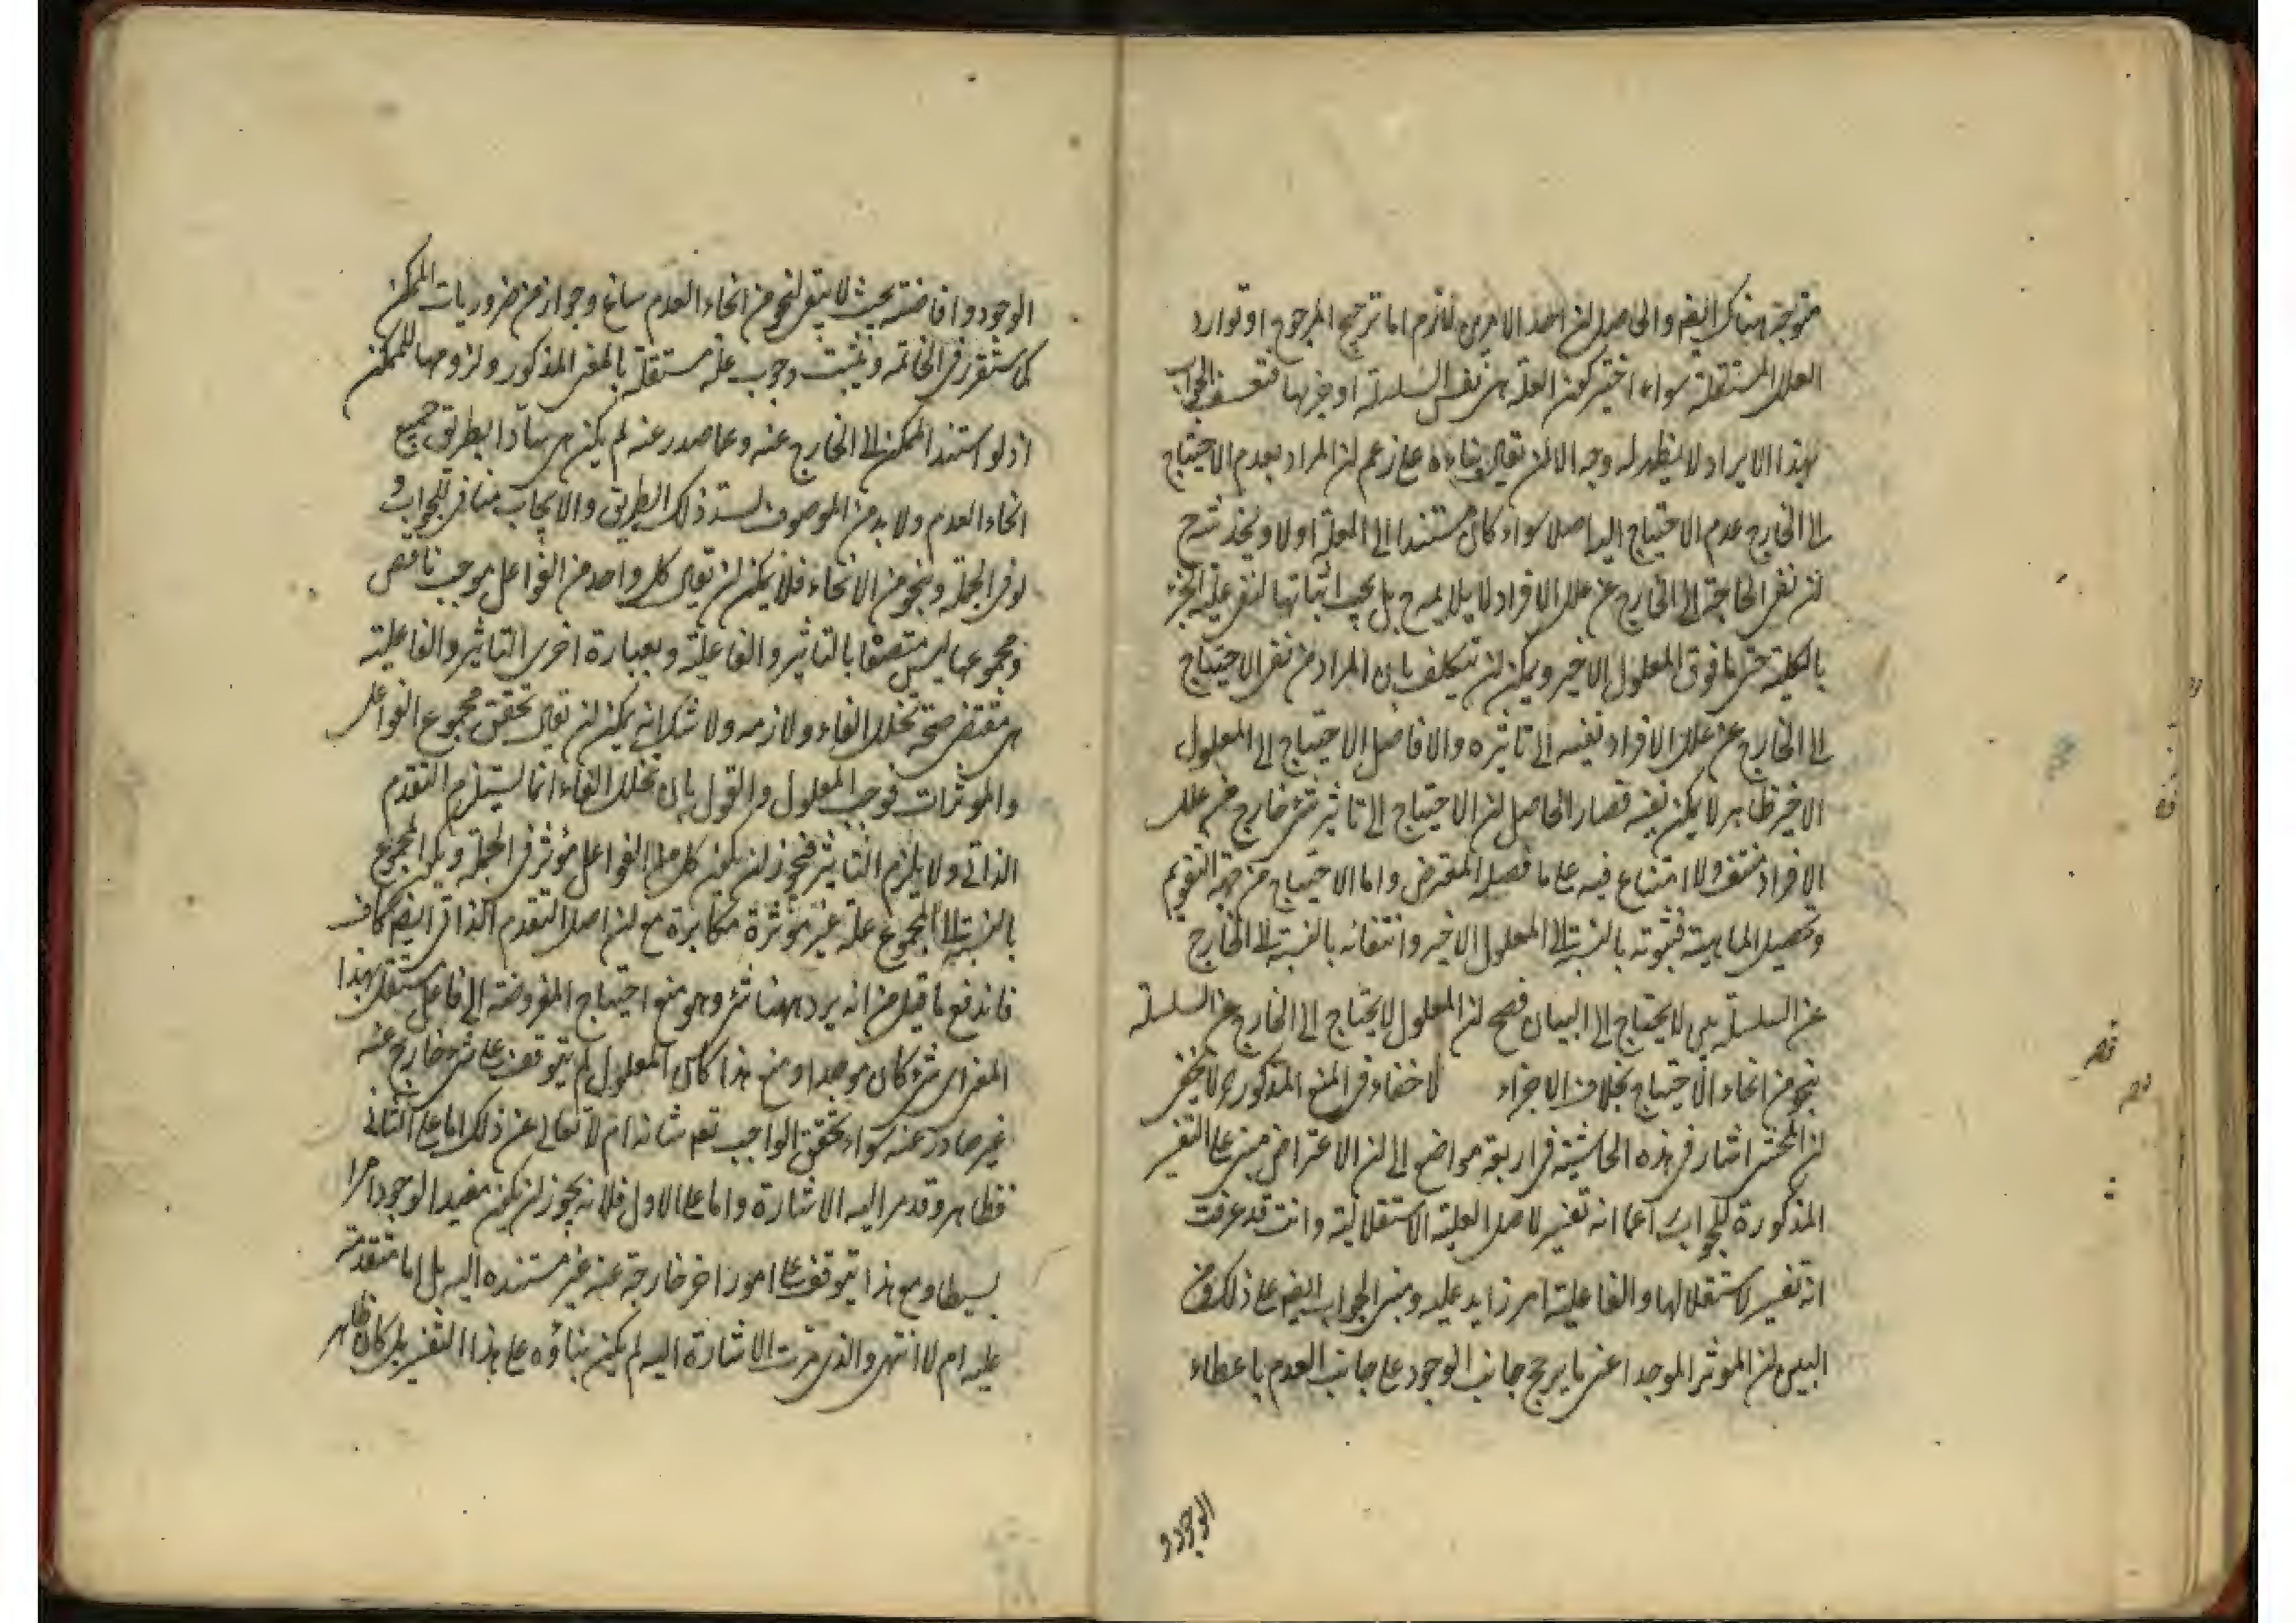 متوجه هناك ايضم والحاصل لن احد الامرين لازم اما ترجيح المرجوح او توارد
العلل المستقلة سواء اختير كون العلة هى نفس السلسلة او جزئها فتعسف الجواب
بهذا الايراد لا يظهر له وجه الا لن يقال بناءه على زعم لن المراد بعدم الاحتياج
الى الخارج عدم الاحتياج اليه اصلا سواء كان مستندا الى العلة اولا و يخدشه ح
لن نفى الحاجة الى الخارج عن علل الافراد لا يلايمه ح بل يجب اثباتها لنفى علية الجزء
بالكلية حتى ما فوق المعلول الاخير ويمكن لن يتكلف بان المراد من نفى الاحتياج
الى الخارج عن علل الافراد نفيه الى تاثيره والا فاصل الاحتياج الى المعلول
الاخير ظاهر لا يمكن نفيه فصار الحاصل لن الاحتياج الى تاثير شئ خارج عن علل
الافراد منتف ولا امتناع فيه على ما فصله المعترض واما الاحتياج من جهة التقويم
وتحصيل الماهية فثبوته بالنسبة الى المعلول الاخير وانتفائه بالنسبة الى الخارج
عن السلسلة بين لا يحتاج الى البيان فصح لن المعلول لا يحتاج الى الخارج عن السلسلة
بنحو من انحاء الاحتياج بخلاف الاجزاء لا خفاء فى المنع المذكور لا يخفى
لن المحشى اشار فى هذه الحاشية فى اربعة مواضع الى لن الاعتراض مبنى على التفسير
المذكورة للجواب انه تفسير لاصل العلية الاستقلالية وانت قد عرفت
انه تفسير لاستقلالها والفاعلية امر زايد عليه ومبنى الجواب ايضم على ذلك ومن
البين لن الموثر الموجد اعنى ما يرجح جانب الوجود على جانب العدم باعطاء
الوجود و
الوجود وافاضته بحيث لا يبقى لنحو من انحاء العدم ساغ وجوازه من ضروريات الممكن
كما ستقرر فى الخاتمه و يثبت وجوب علة مستقلة بالمعنى المذكور ولزومها للممكن
اذ لو استند الممكن الى الخارج عنه وعما صدر عنه لم يكن هى سادا لطريق جميع
انحاء العدم ولا بد من الموصوف لسد ذلك الطريق والايجاب مناف للجواب و
لو فى الجملة و بنحو من الانحاء فلا يمكن لن يقال كل واحد من الفواعل موجب ناقص
ومجموعها ليس متصفا بالتاثير والفاعلية وبعبارة اخرى التاثير والفاعلية
هى مقتضى صحة تخلل الفاء ولازمه ولا شك انه يمكن لن يقال تحقق مجموع الفواعل
والموثرات فوجب المعلول والقول بان تخلل الفاء انما يستلزم التقدم
الذاتى ولا يلزم التاثير فيجوز لن يكون كل من الفواعل مؤثر فى الجملة ويكون المجموع
بالنسبة الى المجموع علة غير مؤثرة مكابرة مع لن اصل التقدم الذاتى ايضم كاف
فاندفع ما قيل من انه يرد ههنا شئ وهو منع احتياج المفروضة الى فاعل مستقل بهذا
المعنى اى شئ كان موجدا و مع هذا كان المعلول لم يتوقف على شئ خارج عنه
غير صادر عنه سواء تحقق الواجب تعم شانه ام لا تعالى عن ذلك اما على الثانى
فظاهر وقد مر اليه الاشارة واما على الاول فلانه يجوز لن يكون مفيد الوجود امرا
بسيطا ومع هذا يتوقف على امور اخر خارجة عنه غير مستنده اليه بل اما متقدمة
عليه ام لا انتهى والذى مرت الاشارة اليه لم يكن بناؤه على هذا التفسير بل كان ظاهر